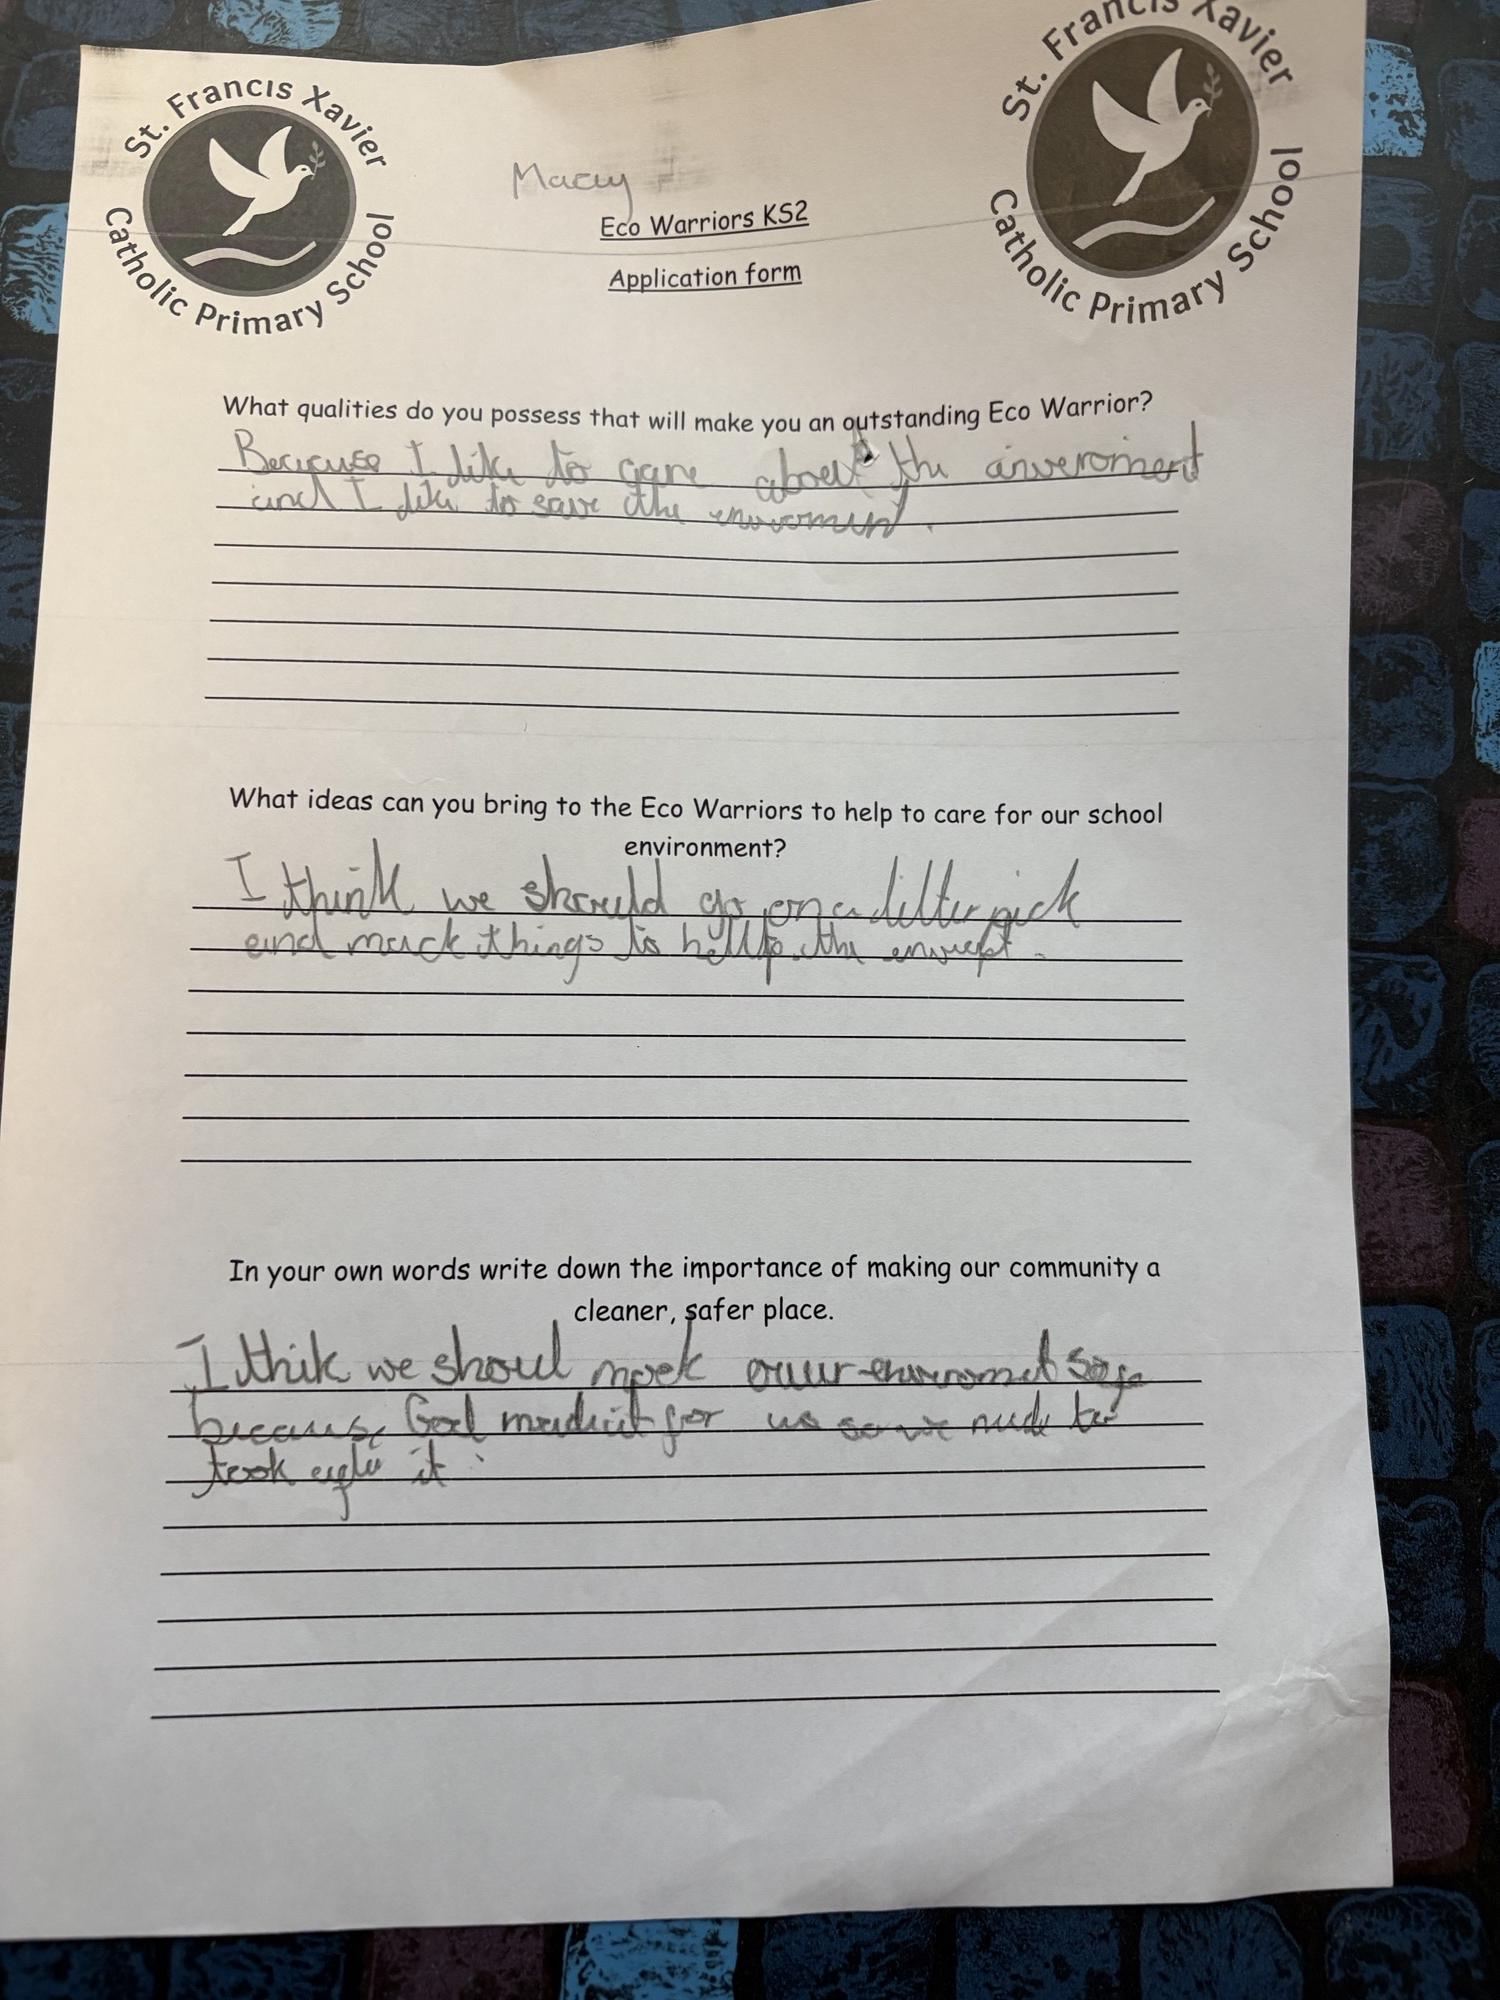 St. Francis Xavier
Catholic Primary School
St. Francis Xavier
Catholic Primary School
Macey
Eco Warriors KS2
Application form
What qualities do you possess that will make you an outstanding Eco Warrior?
Because I like to care about the anveroment
and I like to save the enviroment.
What ideas can you bring to the Eco Warriors to help to care for our school
environment?
I think we should go on a litter pick
and mack things to hellp the
In your own words write down the importance of making our community a
cleaner, safer place.
I thik we shoul moek ouur enviromet safe
because God mad it for us so we nude to
took it.